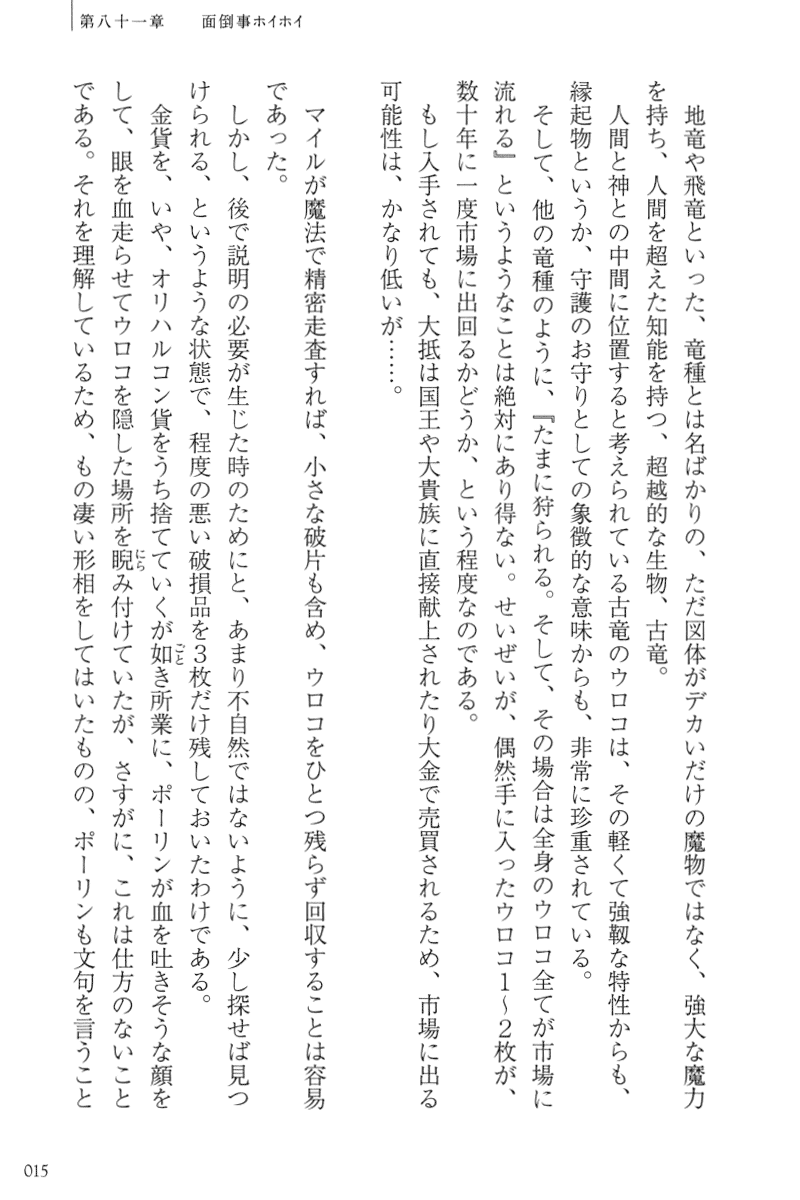 第八十一章　面倒事ホイホイ
　地竜や飛竜といった、竜種とは名ばかりの、ただ図体がデカいだけの魔物ではなく、強大な魔力
を持ち、人間を超えた知能を持つ、超越的な生物、古竜。
　人間と神との中間に位置すると考えられている古竜のウロコは、その軽くて強靱な特性からも、
縁起物というか、守護のお守りとしての象徴的な意味からも、非常に珍重されている。
　そして、他の竜種のように、『たまに狩られる。そして、その場合は全身のウロコ全てが市場に
流れる』というようなことは絶対にあり得ない。せいぜいが、偶然手に入ったウロコ１～２枚が、
数十年に一度市場に出回るかどうか、という程度なのである。
　もし入手されても、大抵は国王や大貴族に直接献上されたり大金で売買されるため、市場に出る
可能性は、かなり低いが……。
　マイルが魔法で精密走査すれば、小さな破片も含め、ウロコをひとつ残らず回収することは容易
であった。
　しかし、後で説明の必要が生じた時のためにと、あまり不自然ではないように、少し探せば見つ
けられる、というような状態で、程度の悪い破損品を３枚だけ残しておいたわけである。
　金貨を、いや、オリハルコン貨をうち捨てていくが如き所業に、ポーリンが血を吐きそうな顔を
ごと
して、眼を血走らせてウロコを隠した場所を睨み付けていたが、さすがに、これは仕方のないこと
にら
である。それを理解しているため、もの凄い形相をしてはいたものの、ポーリンも文句を言うこと
015